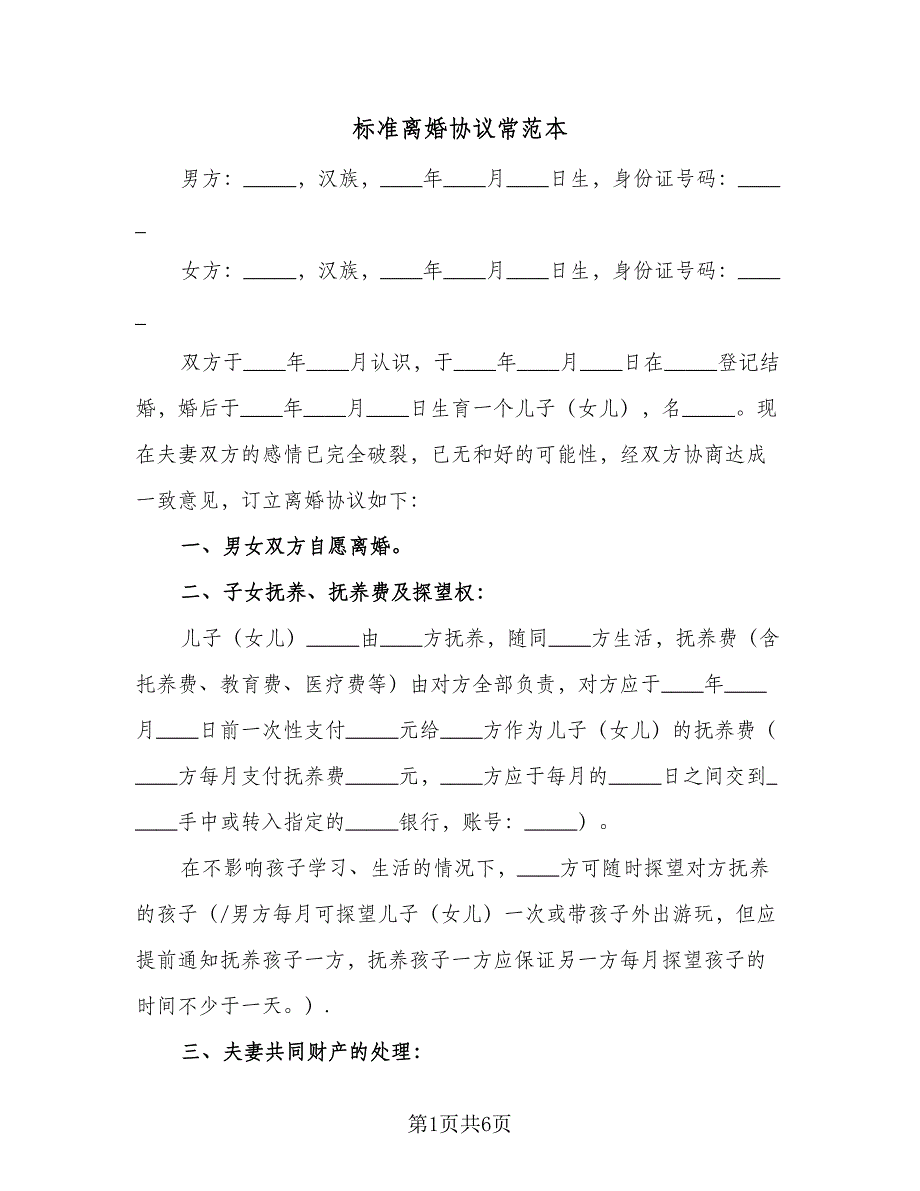 标准离婚协议常范本
男方：_____，汉族，____年____月____日生，身份证号码：____
_
女方：_____，汉族，____年____月____日生，身份证号码：____
_
双方于____年____月认识，于____年____月____日在_____登记结
婚，婚后于____年____月____日生育一个儿子（女儿），名_____。现
在夫妻双方的感情已完全破裂，已无和好的可能性，经双方协商达成
一致意见，订立离婚协议如下：
一、男女双方自愿离婚。
二、子女抚养、抚养费及探望权：
儿子（女儿）_____由____方抚养，随同____方生活，抚养费（含
托养费、教育费、医疗费等）由对方全部负责，对方应于____年____
月____日前一次性支付_____元给____方作为儿子（女儿）的抚养费（
____方每月支付抚养费_____元，____方应于每月的_____日之间交到_
____手中或转入指定的_____银行，账号：_____）。
在不影响孩子学习、生活的情况下，____方可随时探望对方抚养
的孩子（/男方每月可探望儿子（女儿）一次或带孩子外出游玩，但应
提前通知抚养孩子一方，抚养孩子一方应保证另一方每月探望孩子的
时间不少于一天。）.
三、夫妻共同财产的处理：
第1页共6页